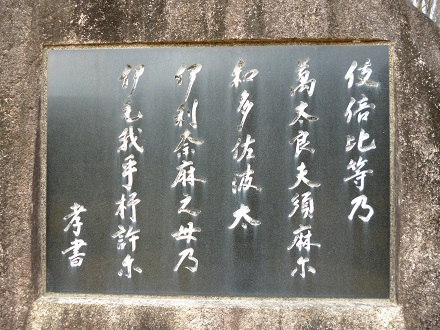 伎倍比等乃
萬太良夫須麻尓
和多佐波太
伊利奈麻之母乃
伊毛我乎杼許尓
孝書